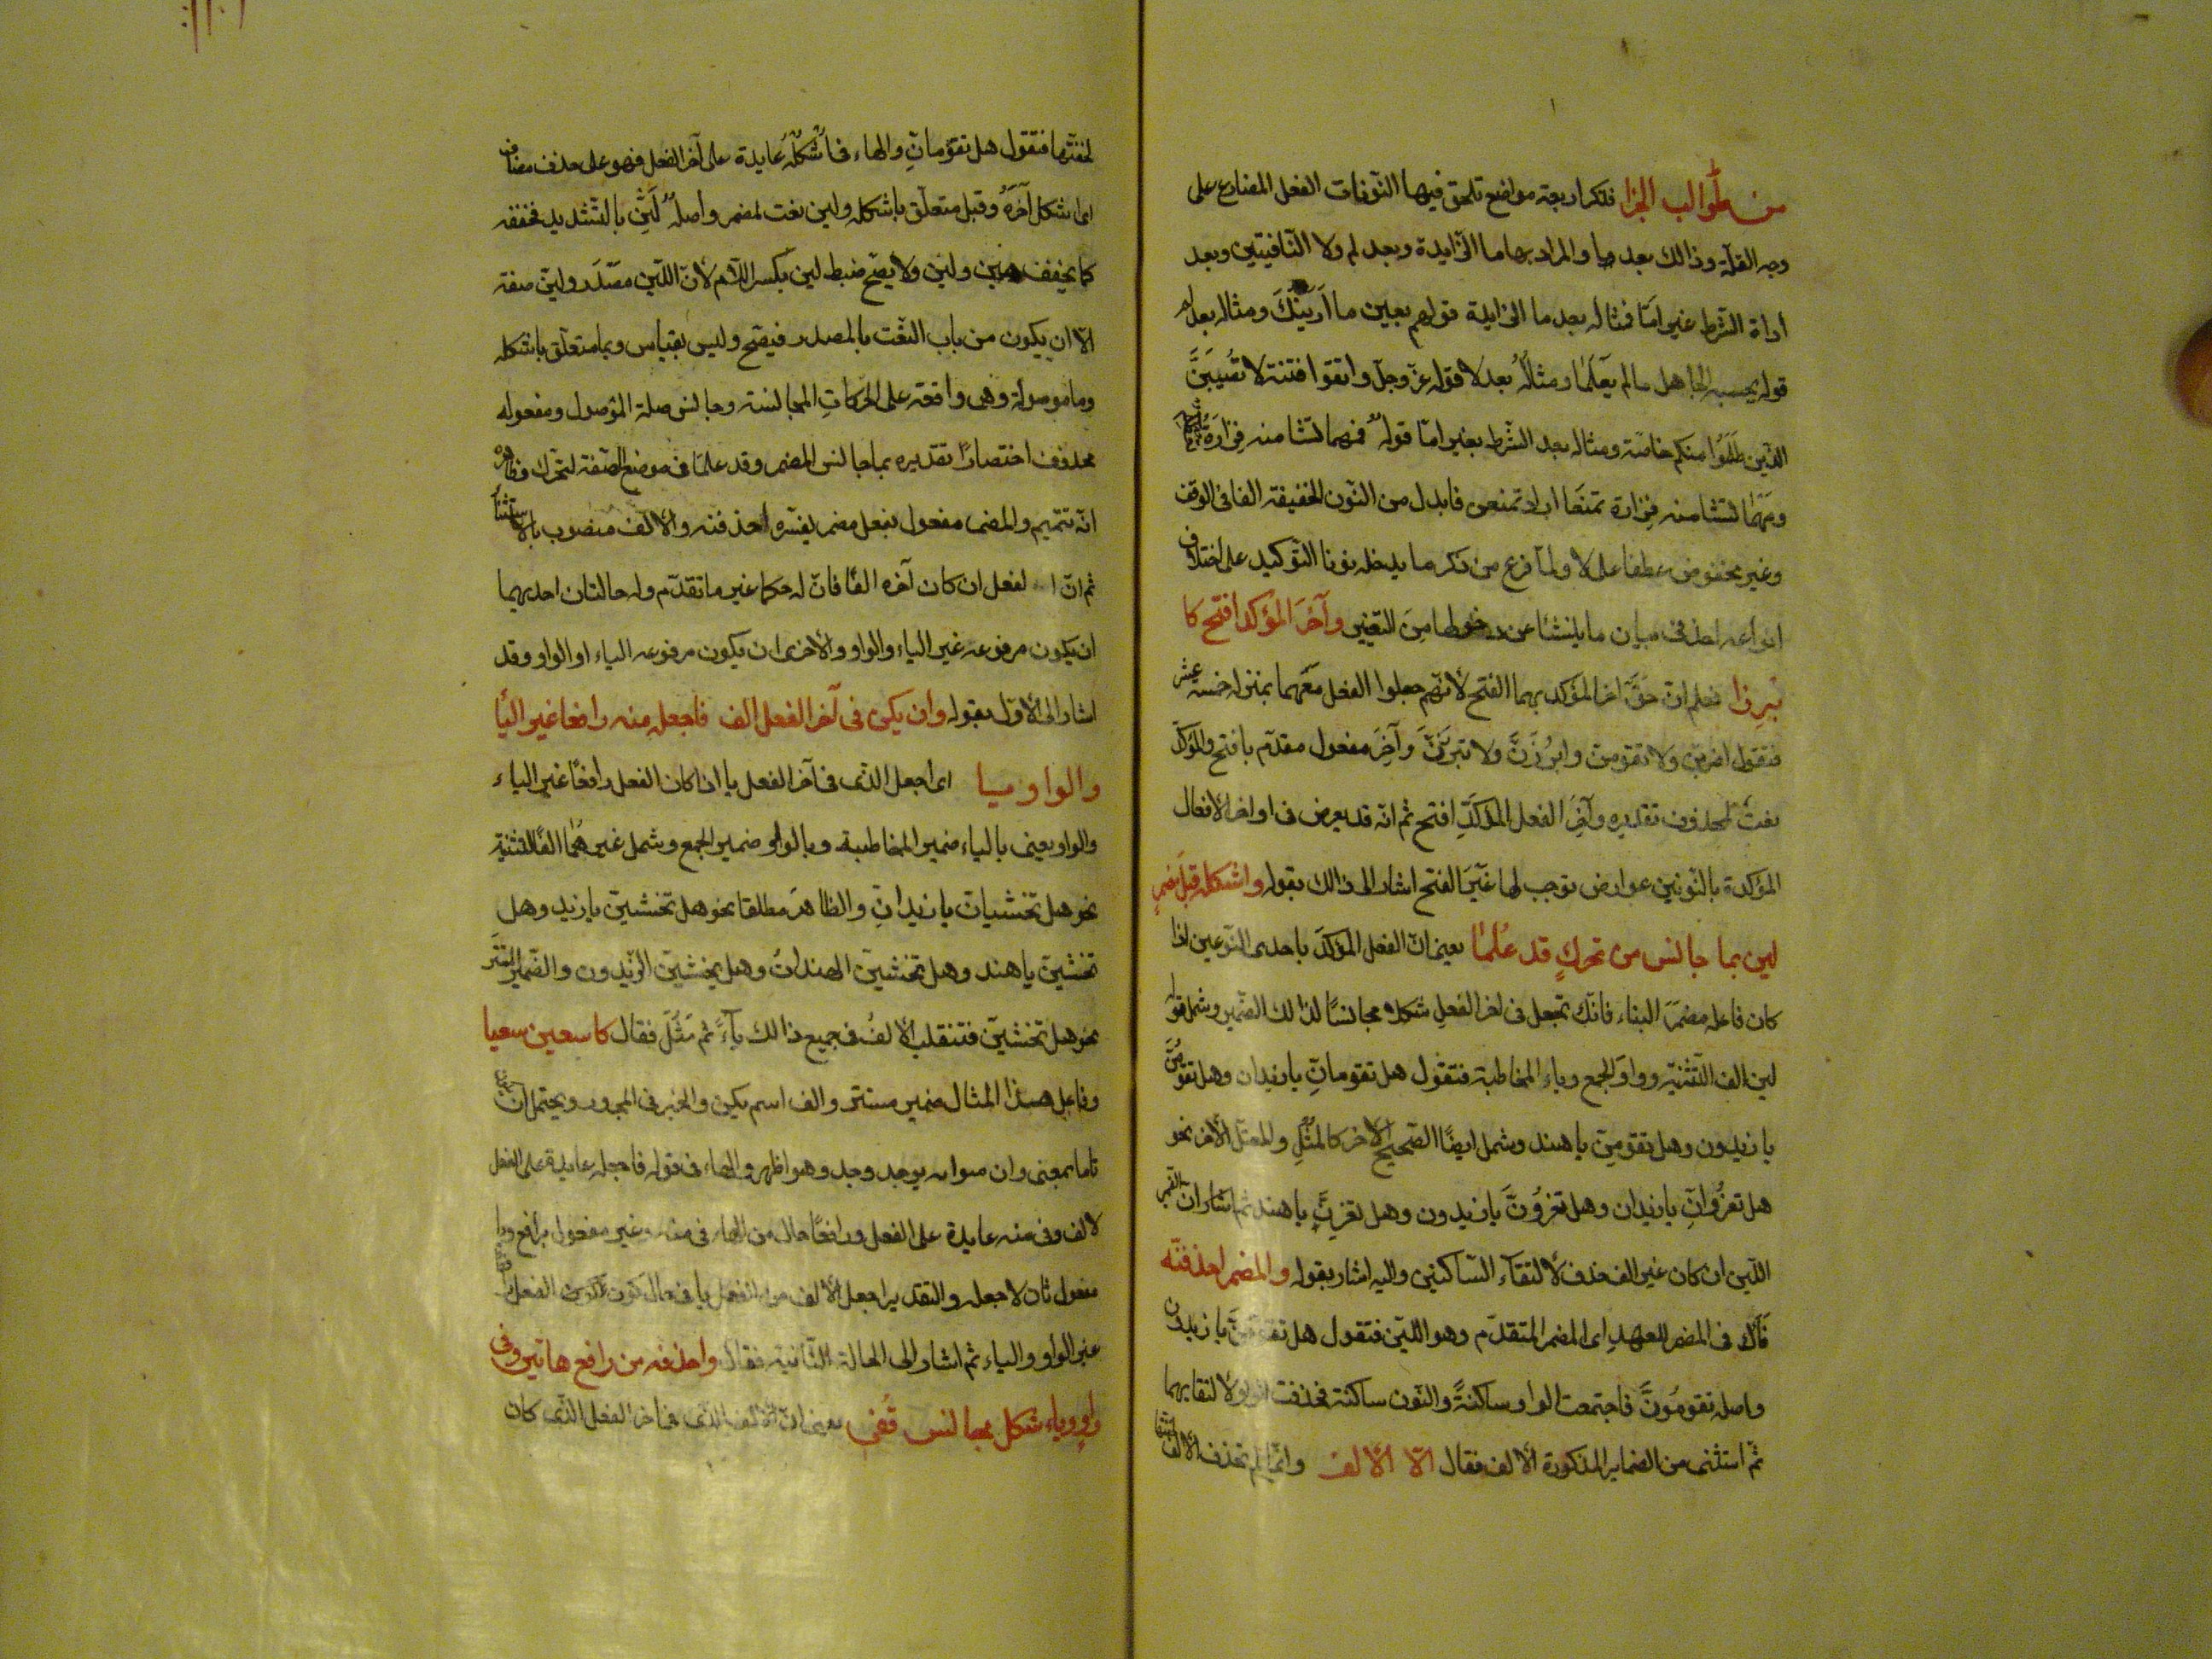 من طوالب الجزا فذكر اربعة مواضع تلحق فيها النونات الفعل المضارع على
وجه القلة وذالك بعد ما والمراد بها ما الزايدة وبعد لم ولا النافيتين وبعد
أداة الشرط غير امّا فمثاله بعد ما الزايدة قولهم بعين ما أرينّك ومثاله بعد لم
قوله يحسبه الجاهل مالم يعلما ومثاله بعد لا قوله عز وجل واتقوا فتنة لا تصيبنّ
الذين ظلموا منكم خاصّة ومثاله بعد الشرط بغير امّا قوله فمهما تشا منه فزارة
ومهما تشا منه فزارة تمنعا اراد تمنعن فابدل من النون الخفيفة الفا فى الوقف
وغير مخفوض عطفا على لا ولما فرغ من ذكر ما يدخله نونا التوكيد على اختلاف
انواعه اخذ فى بيان ما ينشئا عن دخولها من التغيير وآخر المؤكد افتح كا
برزا فعلم انّ حقّ اخر المؤكد بهما الفتح لأنهم جعلوا الفعل معهما بمنزلة خمسة عشر
فتقول اضربن ولا تقومن وابرزنّ ولا تبرزنّ وآخر مفعول مقدّم بافتح والمؤكد
نعت لمحذوف تقديره وآخر الفعل المؤكد افتح ثم انّه قد يعرض فى اواخر الأفعال
المؤكدة بالنونين عوارض توجب لها غير الفتح اشار الى ذالك بقوله واشكله قبل مضمر
لين بما جانس من تحرك قد علما يعنى انّ الفعل المؤكد باحدى النوعين اذا
كان فاعله مضمر البناء فانّك تجعل فى اخر الفعل شكله مجانسا لذالك الضمير وشمل قوله
لين الف التثنية وواو الجمع وياء المخاطبة فتقول هل تقومانّ يا زيدان وهل تقومنّ
يا زيدون وهل تقومنّ يا هند وشمل ايضا الصحيح الآخر كالمثل والمعتلّ الآخر نحو
هل تغزوانّ يا زيدان وهل تغزونّ يا زيدون وهل تغزنّ يا هند ثم اشار انّ الضمير
اللّين ان كان غير الف حذف لألتقاء السّاكنين واليه اشار بقوله والمضمر احذفنّه
فأل فى المضمر للعهد اى المضمر المتقدّم وهو اللّين فتقول هل تقومنّ يا زيدون
واصله تقومونّ فاجتمعت الواو ساكنة والنون ساكنة فحذفت الواو لالتقايهما
ثم استثنى من الضماير المذكورة الألف فقال الّا الألف وانما لم تحذف الألف
لخفتها فتقول هل تقومانّ والهاء فى اشكله عايدة على آخر الفعل فهو على حذف مضاف
اى اشكل آخره وقبل متعلّق باشكله ولين نعت لمضمر واصله ليّن بالتشديد فخففه
كما يخفف هين ولين ولا يصحّ ضبط لين بكسر اللام لأنّ اللّين مصدر ولين صفة
الّا ان يكون من باب النّعت بالمصدر فيصح وليس بقياس وبما متعلّق باشكله
وما موصولة وهى واقعة على الحركات المجانسة وجانس صلة الموصول ومفعوله
محذوف اختصارا تقديره بما جانس المضمر وقد علما فى موضع الصّفة لتحرك وظاهره
انه تتميم والمضمر مفعول بفعل مضمر يفسّره احذفنه والألف منصوب بالاستثناء
ثم انّ الفعل ان كان آخره الفا فانّ له حكما غير ما تقدّم وله حالتان احديهما
ان يكون مرفوعه غير الياء والواو والأخرى ان يكون مرفوعه الياء او الواو وقد
اشار الى الأوّل بقوله وان يكن فى آخر الفعل الف فاجعله منه رافعا غير اليا
والواو يا اى اجعل الذى فى آخر الفعل يا اذا كان الفعل رافعا غير الياء
والواو يعنى بالياء ضمير المخاطبة وبالواو ضمير الجمع وشمل غيرهما الف التثنية
نحو هل تخشيانّ يا زيدان والظاهر مطلقا نحو هل تخشينّ يا زيد وهل
تخشينّ يا هند وهل تخشينّ الهندات وهل يخشينّ الزيدون والضمير المستتر
نحو هل تخشينّ فتنقلب الألف فى جميع ذالك ياءً ثم مثّل فقال كاسعين سعيا
وفاعل هذا المثال ضمير مستتر والف اسم يكن والخبر فى المجرور ويحتمل ان يكون
تاما بمعنى وان يوجد وهو اظهر والهاء فى قوله فاجعله عايدة على الفعل
لالف وفى منه عايدة على الفعل ورافعا حال من الهاء فى منه وغير مفعول برافع ويا
مفعول ثان لاجعله والتقدير اجعل الألف من الفعل يا فى حال كون الفعل رافعا
غير الواو والياء ثم اشار الى الحالة الثانية فقال واحذفه من رافع هاتين وفى
واو ويا شكل مجانس قفى يعنى انّ الألف الذى فى اخر الفعل الذى كان